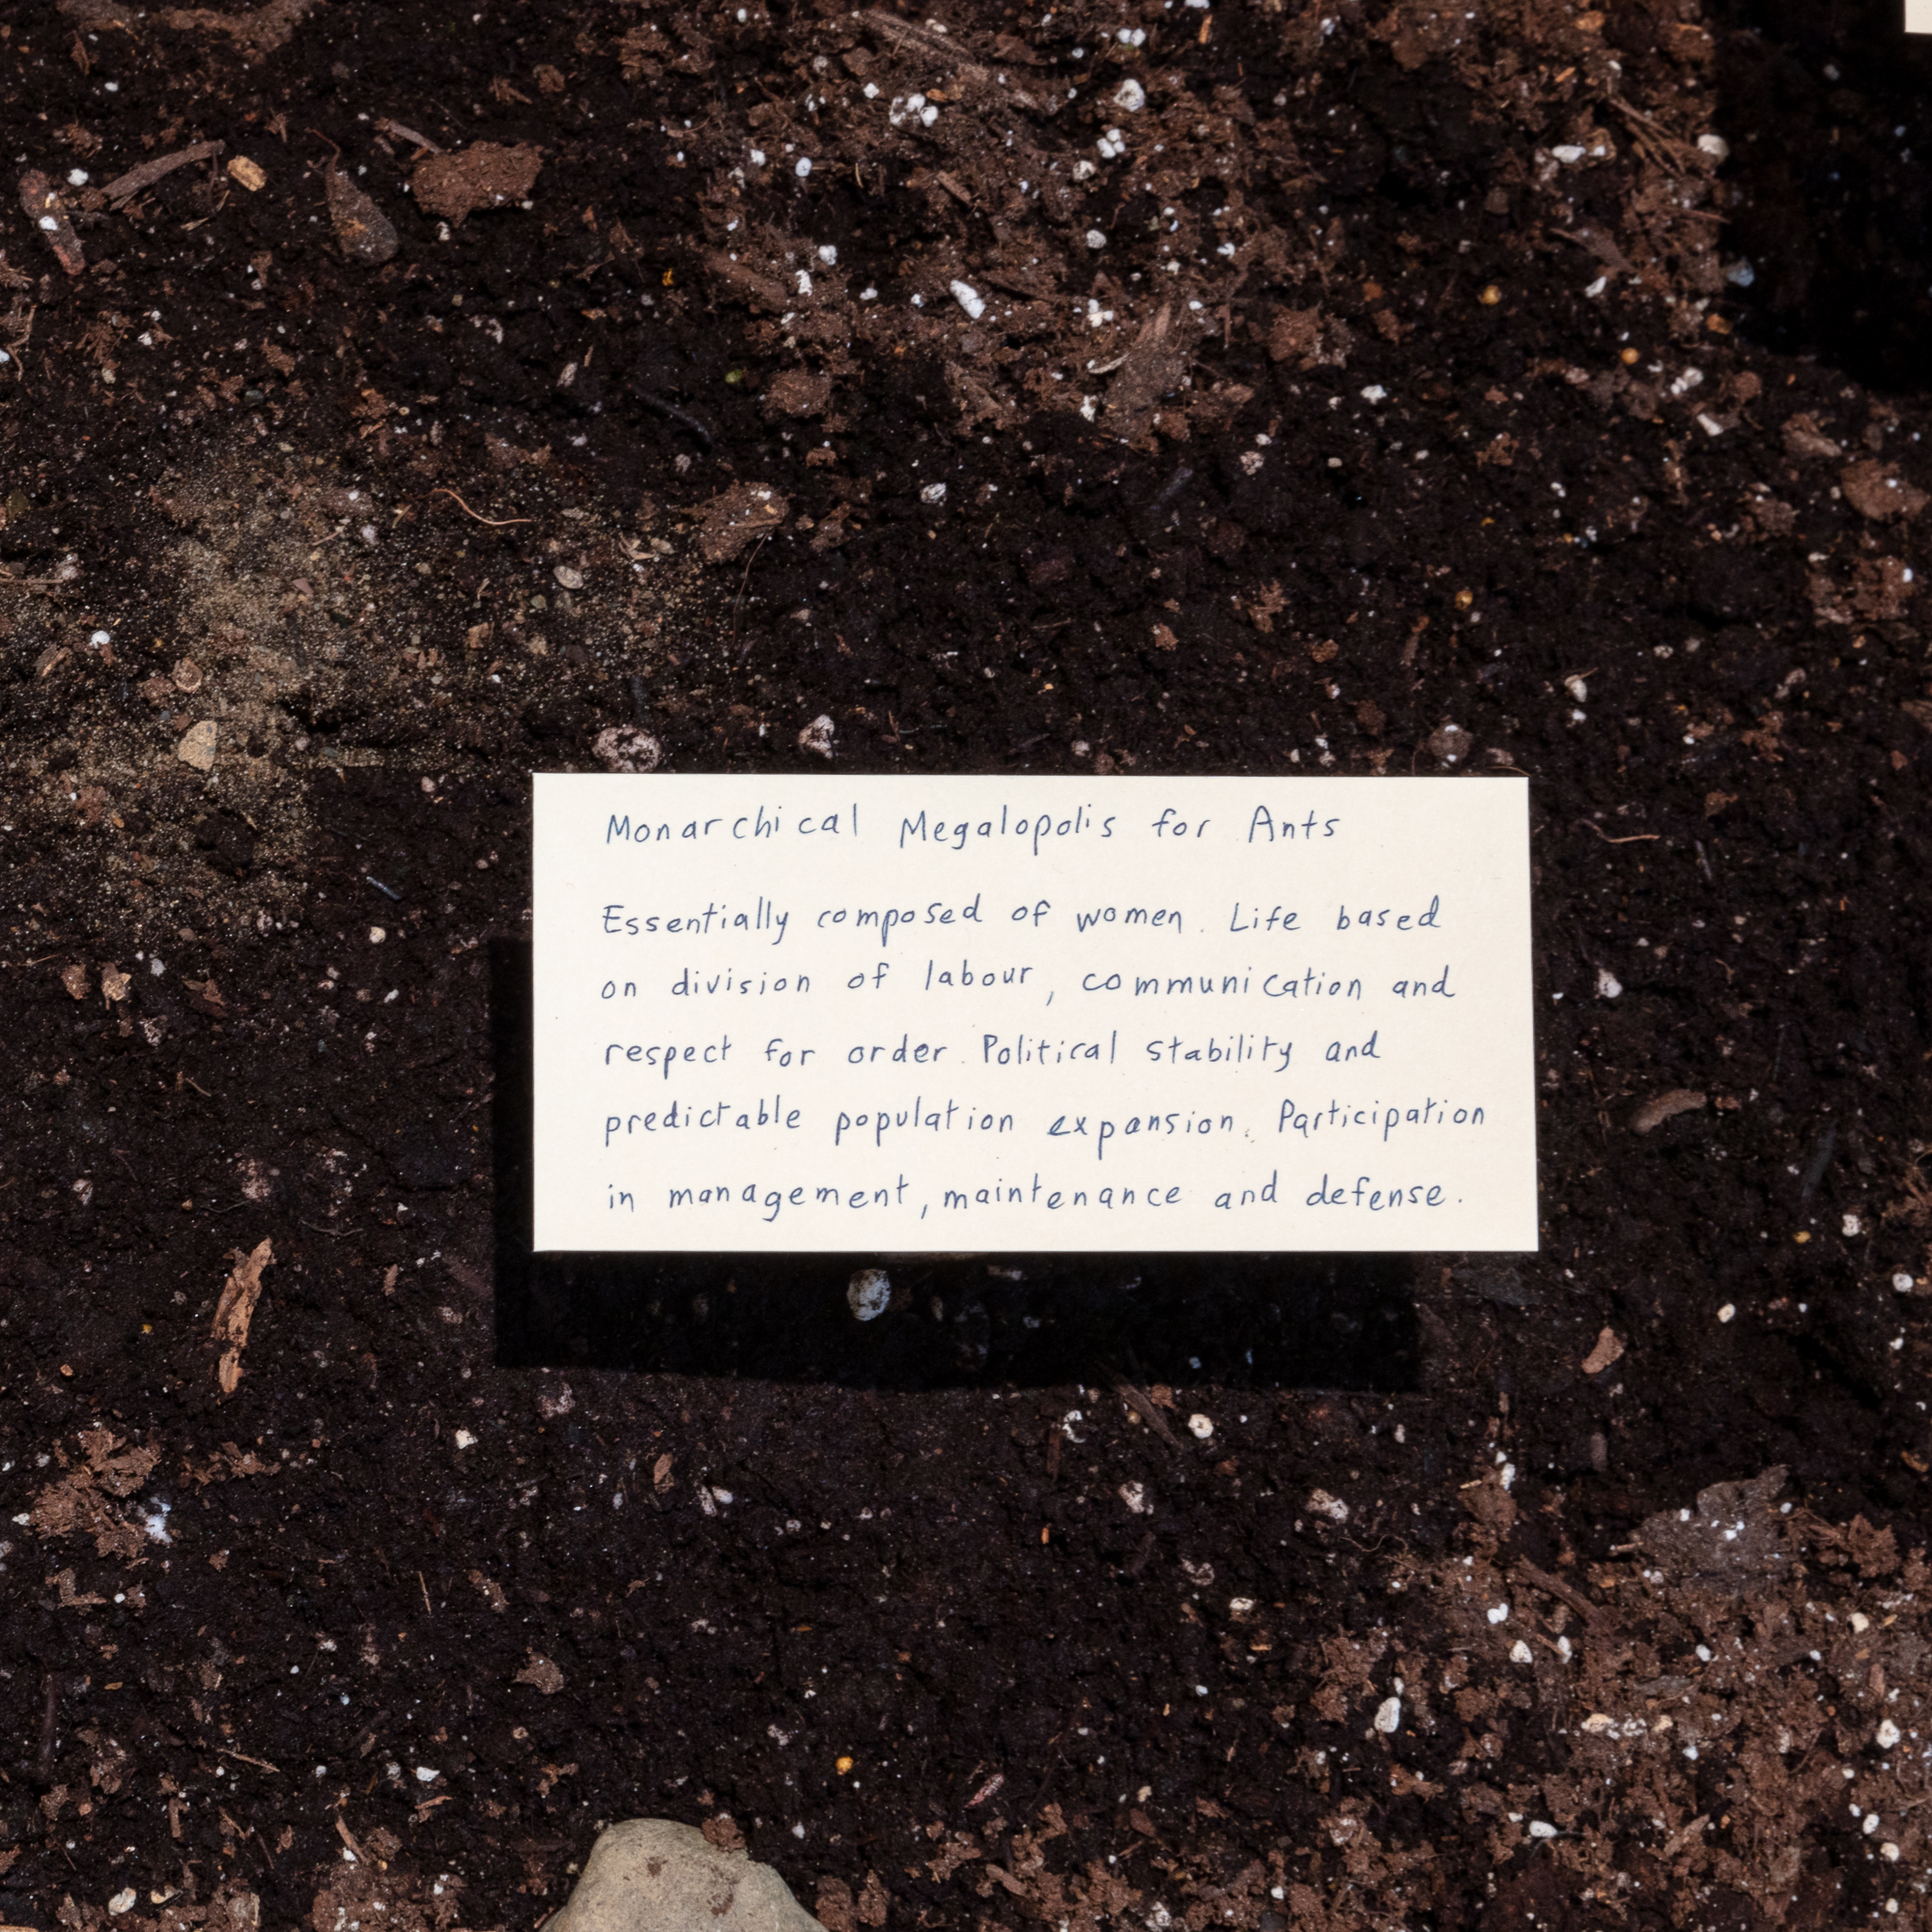 Monarchical Megalopolis for Ants
Essentially composed of women. Life based
on division of labour, communication and
respect for order. Political stability and
predictable population expansion. Participation
in management, maintenance and defense.